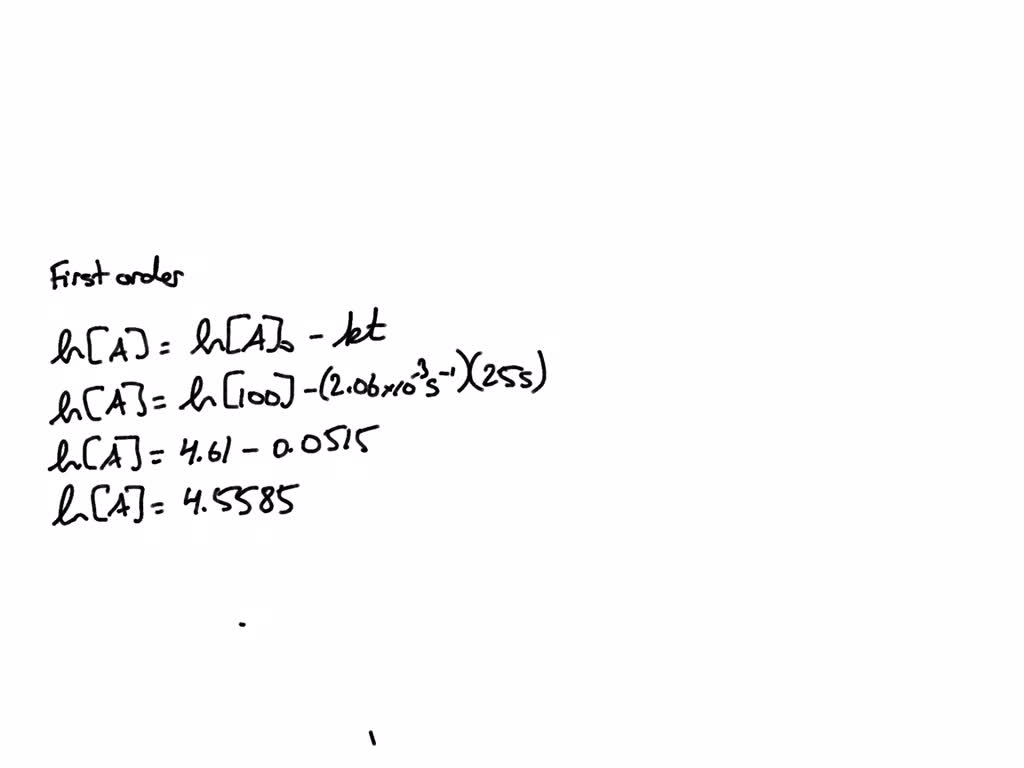 First order
ln[A] = ln[A]₀ - kt
ln[A] = ln[100] - (2.06×10⁻³s⁻¹)(25s)
ln[A] = 4.61 - 0.0515
ln[A] = 4.5585